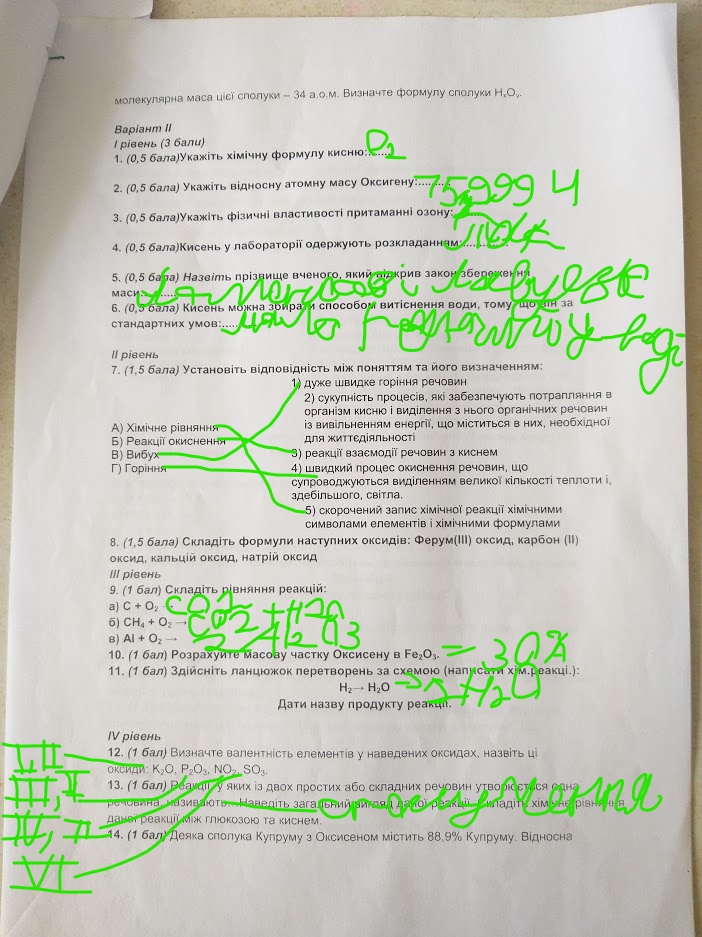 молекулярна маса цієї сполуки – 34 а.о.м. Визначте формулу сполуки HₓOᵧ.
Варіант ІІ
І рівень (3 бали)
1. (0,5 бала)Укажіть хімічну формулу кисню:...... O2
2. (0,5 бала) Укажіть відносну атомну масу Оксигену:......... 15,999 4
3. (0,5 бала)Укажіть фізичні властивості притаманні озону:
4. (0,5 бала)Кисень у лабораторії одержують розкладанням:
5. (0,5 бала) Назвіть прізвище ченого, який відкрив закон збереження
маси:
6. (0,5 бала) Кисень можна збирати способом витіснення води, тому, що він за
стандартних умов:..... мало у воді
ІІ рівень
7. (1,5 бала) Установіть відповідність між поняттям та його визначенням:
1) дуже швидке горіння речовин
2) сукупність процесів, які забезпечують потрапляння в
організм кисню і виділення з нього органічних речовин
із вивільненням енергії, що міститься в них, необхідної
для життєдіяльності
А) Хімічне рівняння
Б) Реакції окиснення
В) Вибух
Г) Горіння
3) реакції взаємодії речовин з киснем
4) швидкий процес окиснення речовин, що
супроводжуються виділенням великої кількості теплоти і,
здебільшого, світла.
5) скорочений запис хімічної реакції хімічними
символами елементів і хімічними формулами
8. (1,5 бала) Складіть формули наступних оксидів: Ферум(ІІІ) оксид, карбон (ІІ)
оксид, кальцій оксид, натрій оксид
ІІІ рівень
9. (1 бал) Складіть рівняння реакцій:
а) C + O₂ → CO2
б) CH₄ + O₂ → CO2 + H2O
в) Al + O₂ → 2Al2O3
10. (1 бал) Розрахуйте масову частку Оксисену в Fe₂O₃. = 30%
11. (1 бал) Здійсніть ланцюжок перетворень за схемою (написати хім.реакці.):
H₂→ H₂O => 2H2O
Дати назву продукту реакції.
IV рівень
12. (1 бал) Визначте валентність елементів у наведених оксидах, назвіть ці
оксиди: K₂O, P₂O₃, NO₂, SO₃.
I, II
III, II
IV, II
VI
13. (1 бал) Реакції, у яких із двох простих або складних речовин утворюється одна
речовина, називають...Наведіть загальний вигляд даної реакції. Складіть хімічне рівняння
даної реакції між глюкозою та киснем.
сполучення
14. (1 бал) Деяка сполука Купруму з Оксисеном містить 88,9% Купруму. Відносна